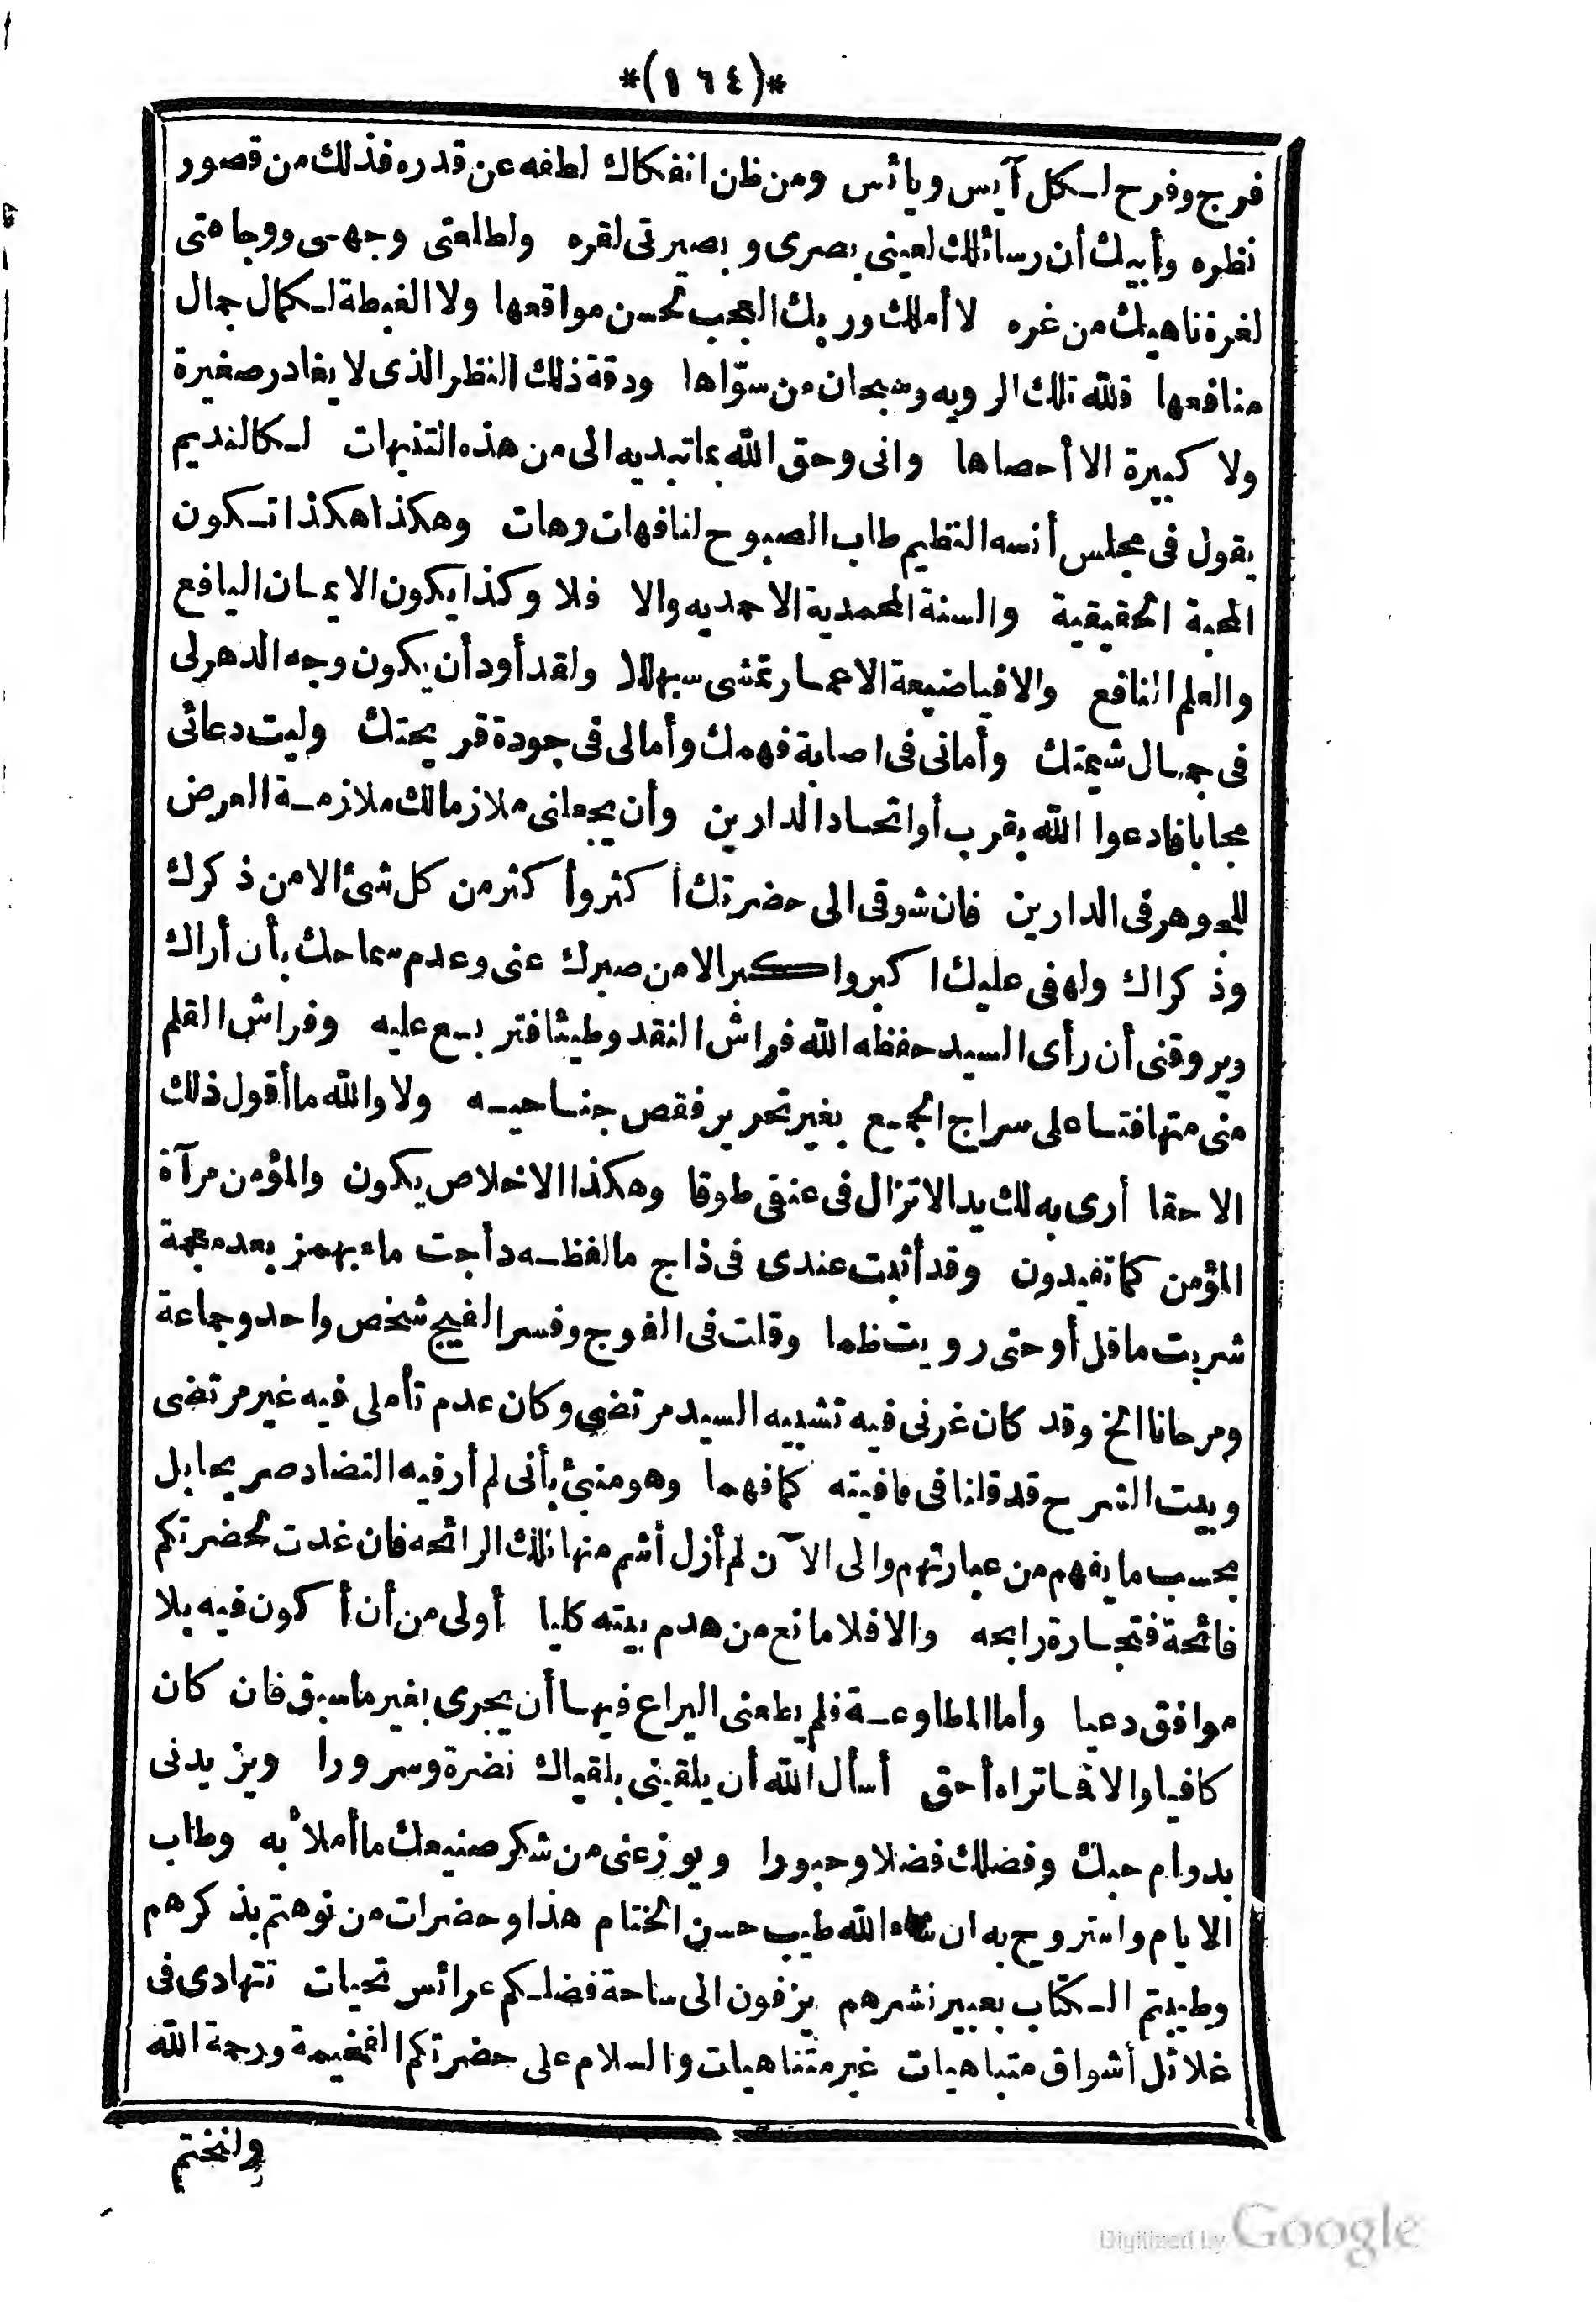 *(١٦٤)*
فرج وفرح لكل آيس ويائس ومن ظن انفكاك لطفه عن قدره فذلك من قصور
نظره وأبيك أن رسائلك لعيني بصرى وبصيرتى لقره ولطلعتى وجهى ووجاهتى
لغرة ناهيك من غره لا أملك وربك العجب تحسن مواقعها ولا الغبطة لكمال جمال
منافعها فلله تلك الرويه وسبحان من سوّاها ودقة ذلك النظر الذى لا يغادر صغيرة
ولا كبيرة الا أحصاها وانى وحق الله بما تبديه الى من هذه التنبهات لكالنديم
يقول فى مجلس أنسه النظيم طاب الصبوح لنا فهات وهات وهكذا هكذا تكون
المحبة الحقيقية والسنة المحمدية الاحمديه والا فلا وكذا يكون الايمان اليافع
والعلم النافع والا فيا ضيعة الاعمار تمشى سبهللا ولقد أود أن يكون وجه الدهر لى
فى جمال شيمتك وأمانى فى اصابة فهمك وأمالى فى جودة قريحتك وليت دعائى
مجابا فادعوا الله بقرب أو اتحاد الدارين وأن يجعلنى ملازما لك ملازمة العرض
للجوهر فى الدارين فان شوقى الى حضرتك أكثر وأكثر من كل شئ الا من ذكرك
وذكراك ولهفى عليك اكبر واكبر الا من صبرك عنى وعدم سماحك بأن أراك
ويروقنى أن رأى السيد حفظه الله فراش النقد وطيئا فتربع عليه وفراش القلم
منى متهافتا على سراج الجمع بغير تحرير فقص جناحيه ولا والله ما أقول ذلك
الا حقا أرى به لك يدا لا تزال فى عنقى طوقا وهكذا الاخلاص يكون والمؤمن مرآة
المؤمن كما تفيدون وقد أثبت عندى فى ذاج ما لفظه دأجت ماء بهمز بعد معجمة
شربت ما قل أو حتى رويت ظما وقلت فى الفوج وفسر الفيج شخص واحد وجماعة
ومرحانا الخ وقد كان غرنى فيه تشبيه السيد مرتضى وكان عدم تأملى فيه غير مرتضى
وبيت الشرح قد قلنا فى مافيته كما فهما وهو منبئ بأنى لم أر فيه التضاد صريحا بل
بحسب ما يفهم من عبارتهم والى الآن لم أزل أشم منها تلك الرائحه فان غدت لحضرتكم
فائحة فتجارة رابحه والا فلا مانع من هدم بيته كليا أولى من أن أكون فيه بلا
موافق دعيا وأما المطاوعة فلم يطعنى اليراع فيها أن يجرى بغير ما سبق فان كان
كافيا والا فما تراه أحق أسأل الله أن يلقينى بلقياك نضرة وسرورا ويزيدنى
بدوام حبك وفضلك فضلا وحبورا ويوزعنى من شكر صنيعك ما أملأ به وطاب
الايام واستروح به ان شاء الله طيب حسن الختام هذا وحضرات من نوهتم بذكرهم
وطيبتم الكتاب بعبير نشرهم يزفون الى ساحة فضلكم عرائس تحيات تتهادى فى
غلائل أشواق متباهيات غير متناهيات والسلام على حضرتكم الفخيمة ورحمة الله
ولنختم
Digitized by Google